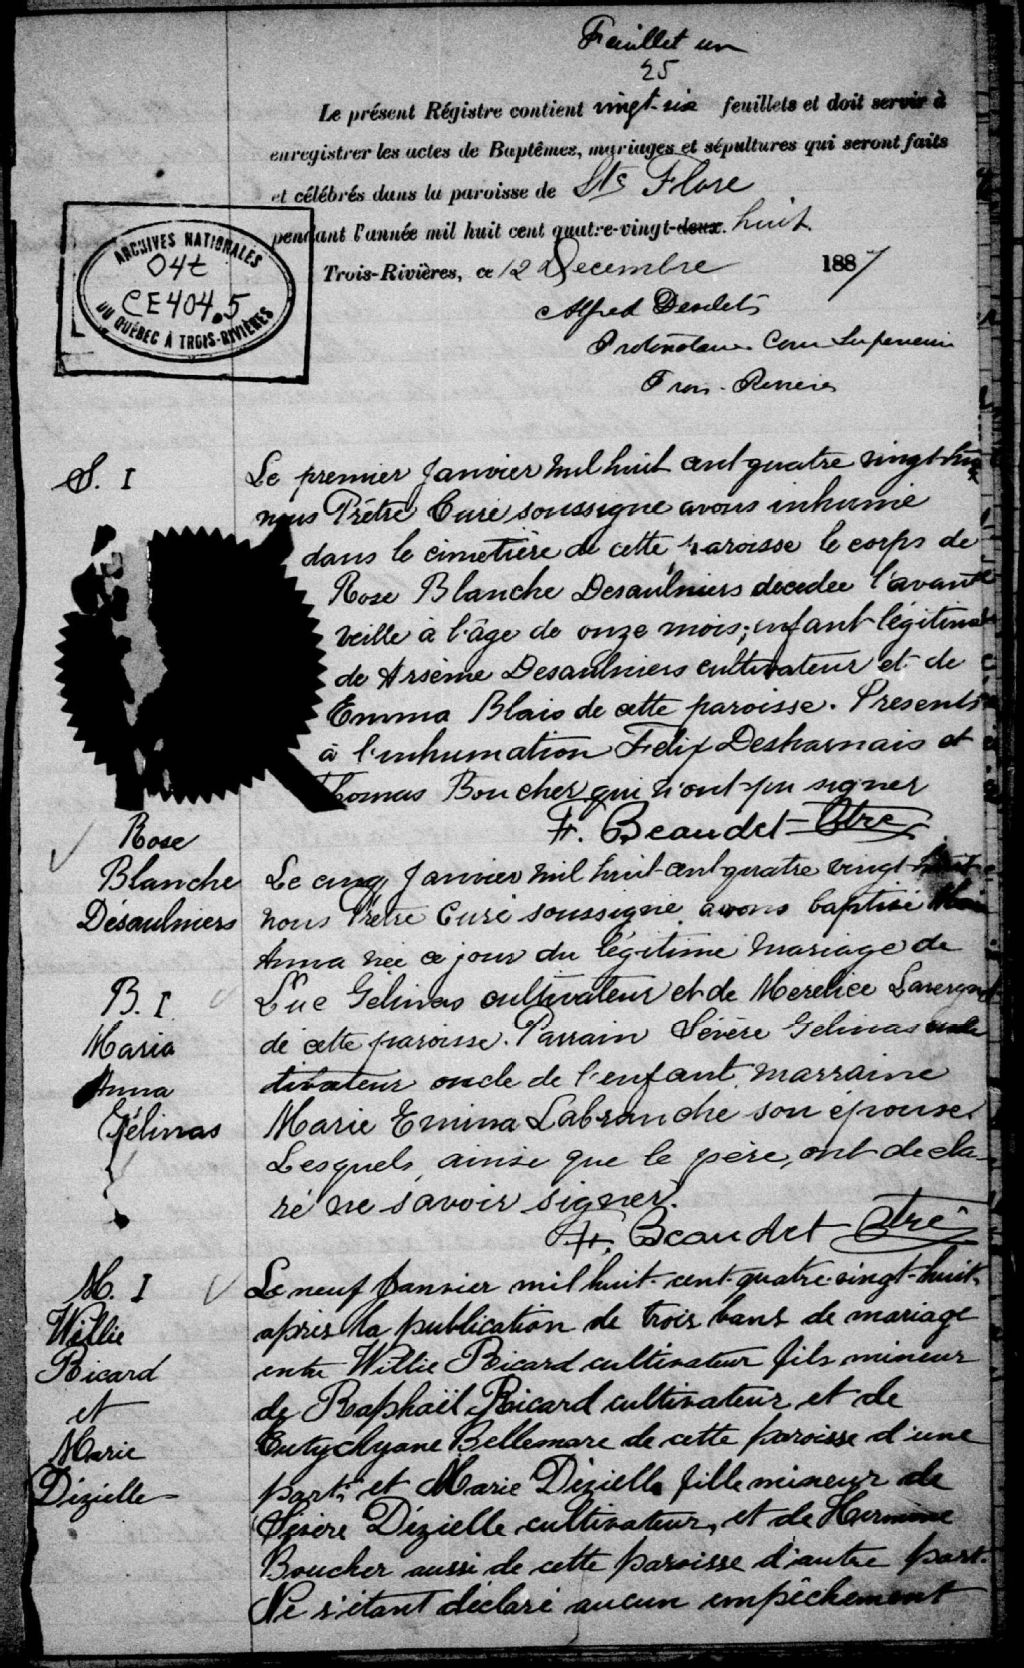 Feuillet un
25
Le présent Régistre contient vingt-six feuillets et doit servir à
enregistrer les actes de Baptêmes, mariages et sépultures qui seront faits
et célébrés dans la paroisse de Ste Flore
pendant l'année mil huit cent quatre-vingt-deux. huit
Trois-Rivières, ce 12 Decembre 1887
Alfred Desilets
Protonotaire Cour Superieure
Trois-Rivieres
ARCHIVES NATIONALES
04t
CE404.5
DU QUÉBEC À TROIS-RIVIÈRES
S. I
Rose
Blanche
Désaulniers
Le premier Janvier mil huit cent quatre vingt-huit
nous Prêtre Curé soussigné avons inhumé
dans le cimetière de cette paroisse le corps de
Rose Blanche Desaulniers décédée l'avant
veille à l'âge de onze mois; enfant légitime
de Arsème Desaulniers cultivateur et de
Emma Blais de cette paroisse. Présents
à l'inhumation Felix Desharnais et
Thomas Boucher qui n'ont pu signer
F. Beaudet Ptre
B. I
Maria
Anna
Gélinas
Le cinq Janvier mil huit-cent quatre vingt-huit
nous Prêtre Curé soussigné avons baptisé
Anna née ce jour du légitime mariage de
Luc Gélinas cultivateur et de Merelice
de cette paroisse. Parrain Sévère Gelinas cul
tivateur oncle de l'enfant, marraine
Marie Emina Labranche son épouse.
Lesquels, ainsi que le père, ont décla
ré ne savoir signer.
F. Beaudet Ptre
M. I
Willie
Ricard
et
Marie
Dizielle
Le neuf Janvier mil huit-cent-quatre-vingt-huit,
après la publication de trois bans de mariage
entre Willie Ricard cultivateur fils mineur
de Raphaël Ricard cultivateur et de
Eutychyane Bellemare de cette paroisse d'une
part; et Marie Dizielle fille mineur de
Sévère Dizielle cultivateur, et de Hermine
Boucher aussi de cette paroisse d'autre part.
Ne s'étant déclaré aucun empêchement